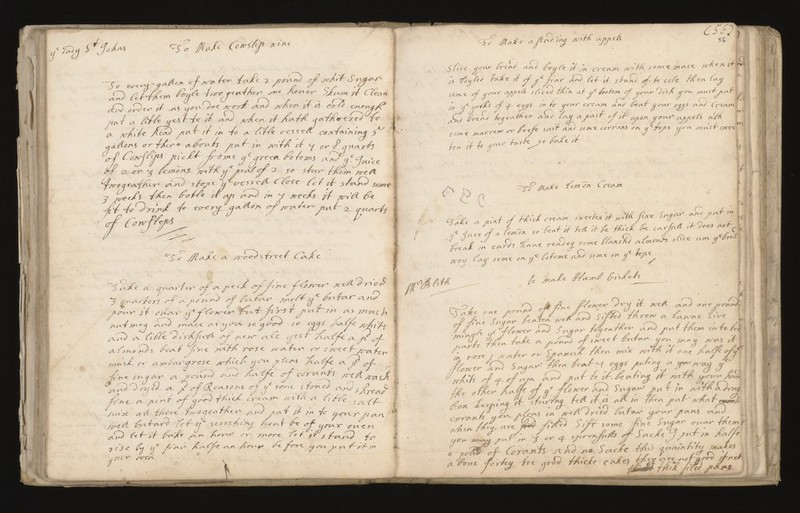 yᵉ Lady Sᵗ Johns
To Make Cowslip wine
To every gallon of water take 2 pound of whit Sugar
and let them boyle twogeather one hower Skum it Clean
and order it as you doe work and when it is cold enough
put a litle yest to it and when it hath gathered to
a white head put it in to a litle vessell containing 5
gallons or there abouts put in with it 7 or 8 quarts
of Cowslips pickt from yᵉ green botoms and yᵉ Juice
of 2 or 3 lemons with yᵉ peal of 2 so stur them well
twogeather and stope yᵉ vessell Close let it stand some
3 weeks then botle it up and in 3 weeks it will be
fit to drink to every gallon of water put 2 quarts
of Cowsleps
To Make a woodstreet Cake
Take a quarter of a peck of fine flower well dried
3 quarters of a pound of butar melt yᵉ butar and
pour it ouar yᵉ flower but first put in as much
nutmeg and mace as you se good 10 eggs halfe whits
and a litle dishfull of new ale yest halfe a pᵈ of
almonds beat fine with rose water or sweet water
musk or ambargrese which you pleas halfe a pᵈ of
fine sugar a pound and halfe of corants well wash
and dryed a pᵈ of Reasons of yᵉ sone stoned and shread
fine a pint of good thick cream with a litle salt
mix all these twogeather and put it in to your pan
well butard let yᵉ scorching heat be of your oven
and let it bake an hour or more let it stand to
rise by yᵉ fire halfe an hour be fore you put it in
your oven
(55)
56
To Make a puding with appels
Slice your bread and boyle it in cream with some mace when it
is boyled take it of yᵉ fiar and let it stand to cole then lay
some of your appels sliced thin at yᵉ botom of your dish you must put
in yᵉ yolks of 4 eggs in to your cream and beat your eggs and cream
and bread togeather and lay a part of it upon your appels with
some marrow or beefe suit and some corrans on yᵉ tope you must swee
ten it to your taste so bake it
To Make Lemon Cream
Take a pint of thick cream sweeten it with fine Sugar and put in
yᵉ Juce of a lemon so beat it tell it be thick be carfull it does not
break in curds have readey some blanchd almonds slice um yᵉ broad
way lay some in yᵉ botome and some on yᵉ tope
to make biskets
Take one pound of fine flower dry it well and one pound
of fine Sugar beaten well and sifted throw a lawne sive
mingle yᵉ flower and Sugar togeather and put them in to two
parts then take a pound of sweet butar you may wash it
in rose water or Spanish then mix with it one halfe of yᵉ
flower and Sugar then beat 7 eggs puting a way yᵉ
whits of 4 of um and put in it beating it with your hand
the other halfe of yᵉ flower and Sugar put in with a drug
box keeping it sturing tell it is all in then put what
corants you pleas in well dried butar your pans and
when they are filled Sift some fine Sugar ouar them
you may put in 3 or 4 spoonfulls of Sacke I put in halfe
a pound of Corants and no Sacke this quaintity makes
a bove fortey the good thicke cakes they are not good if not
thick filed pans